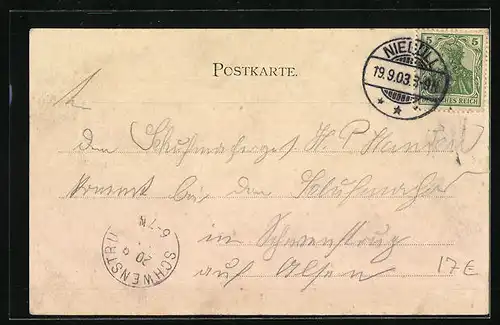 POSTKARTE.
NIEBÜLL
19.9.03. 8-9N.
5 5
DEUTSCHES REICH
An
den Schuhmacherges. H. P. Hansen
kommt bei den Schuhmacher
in Schwenstrup
auf Alsen
SCHWENSTRU
20 9
6-7N
17E